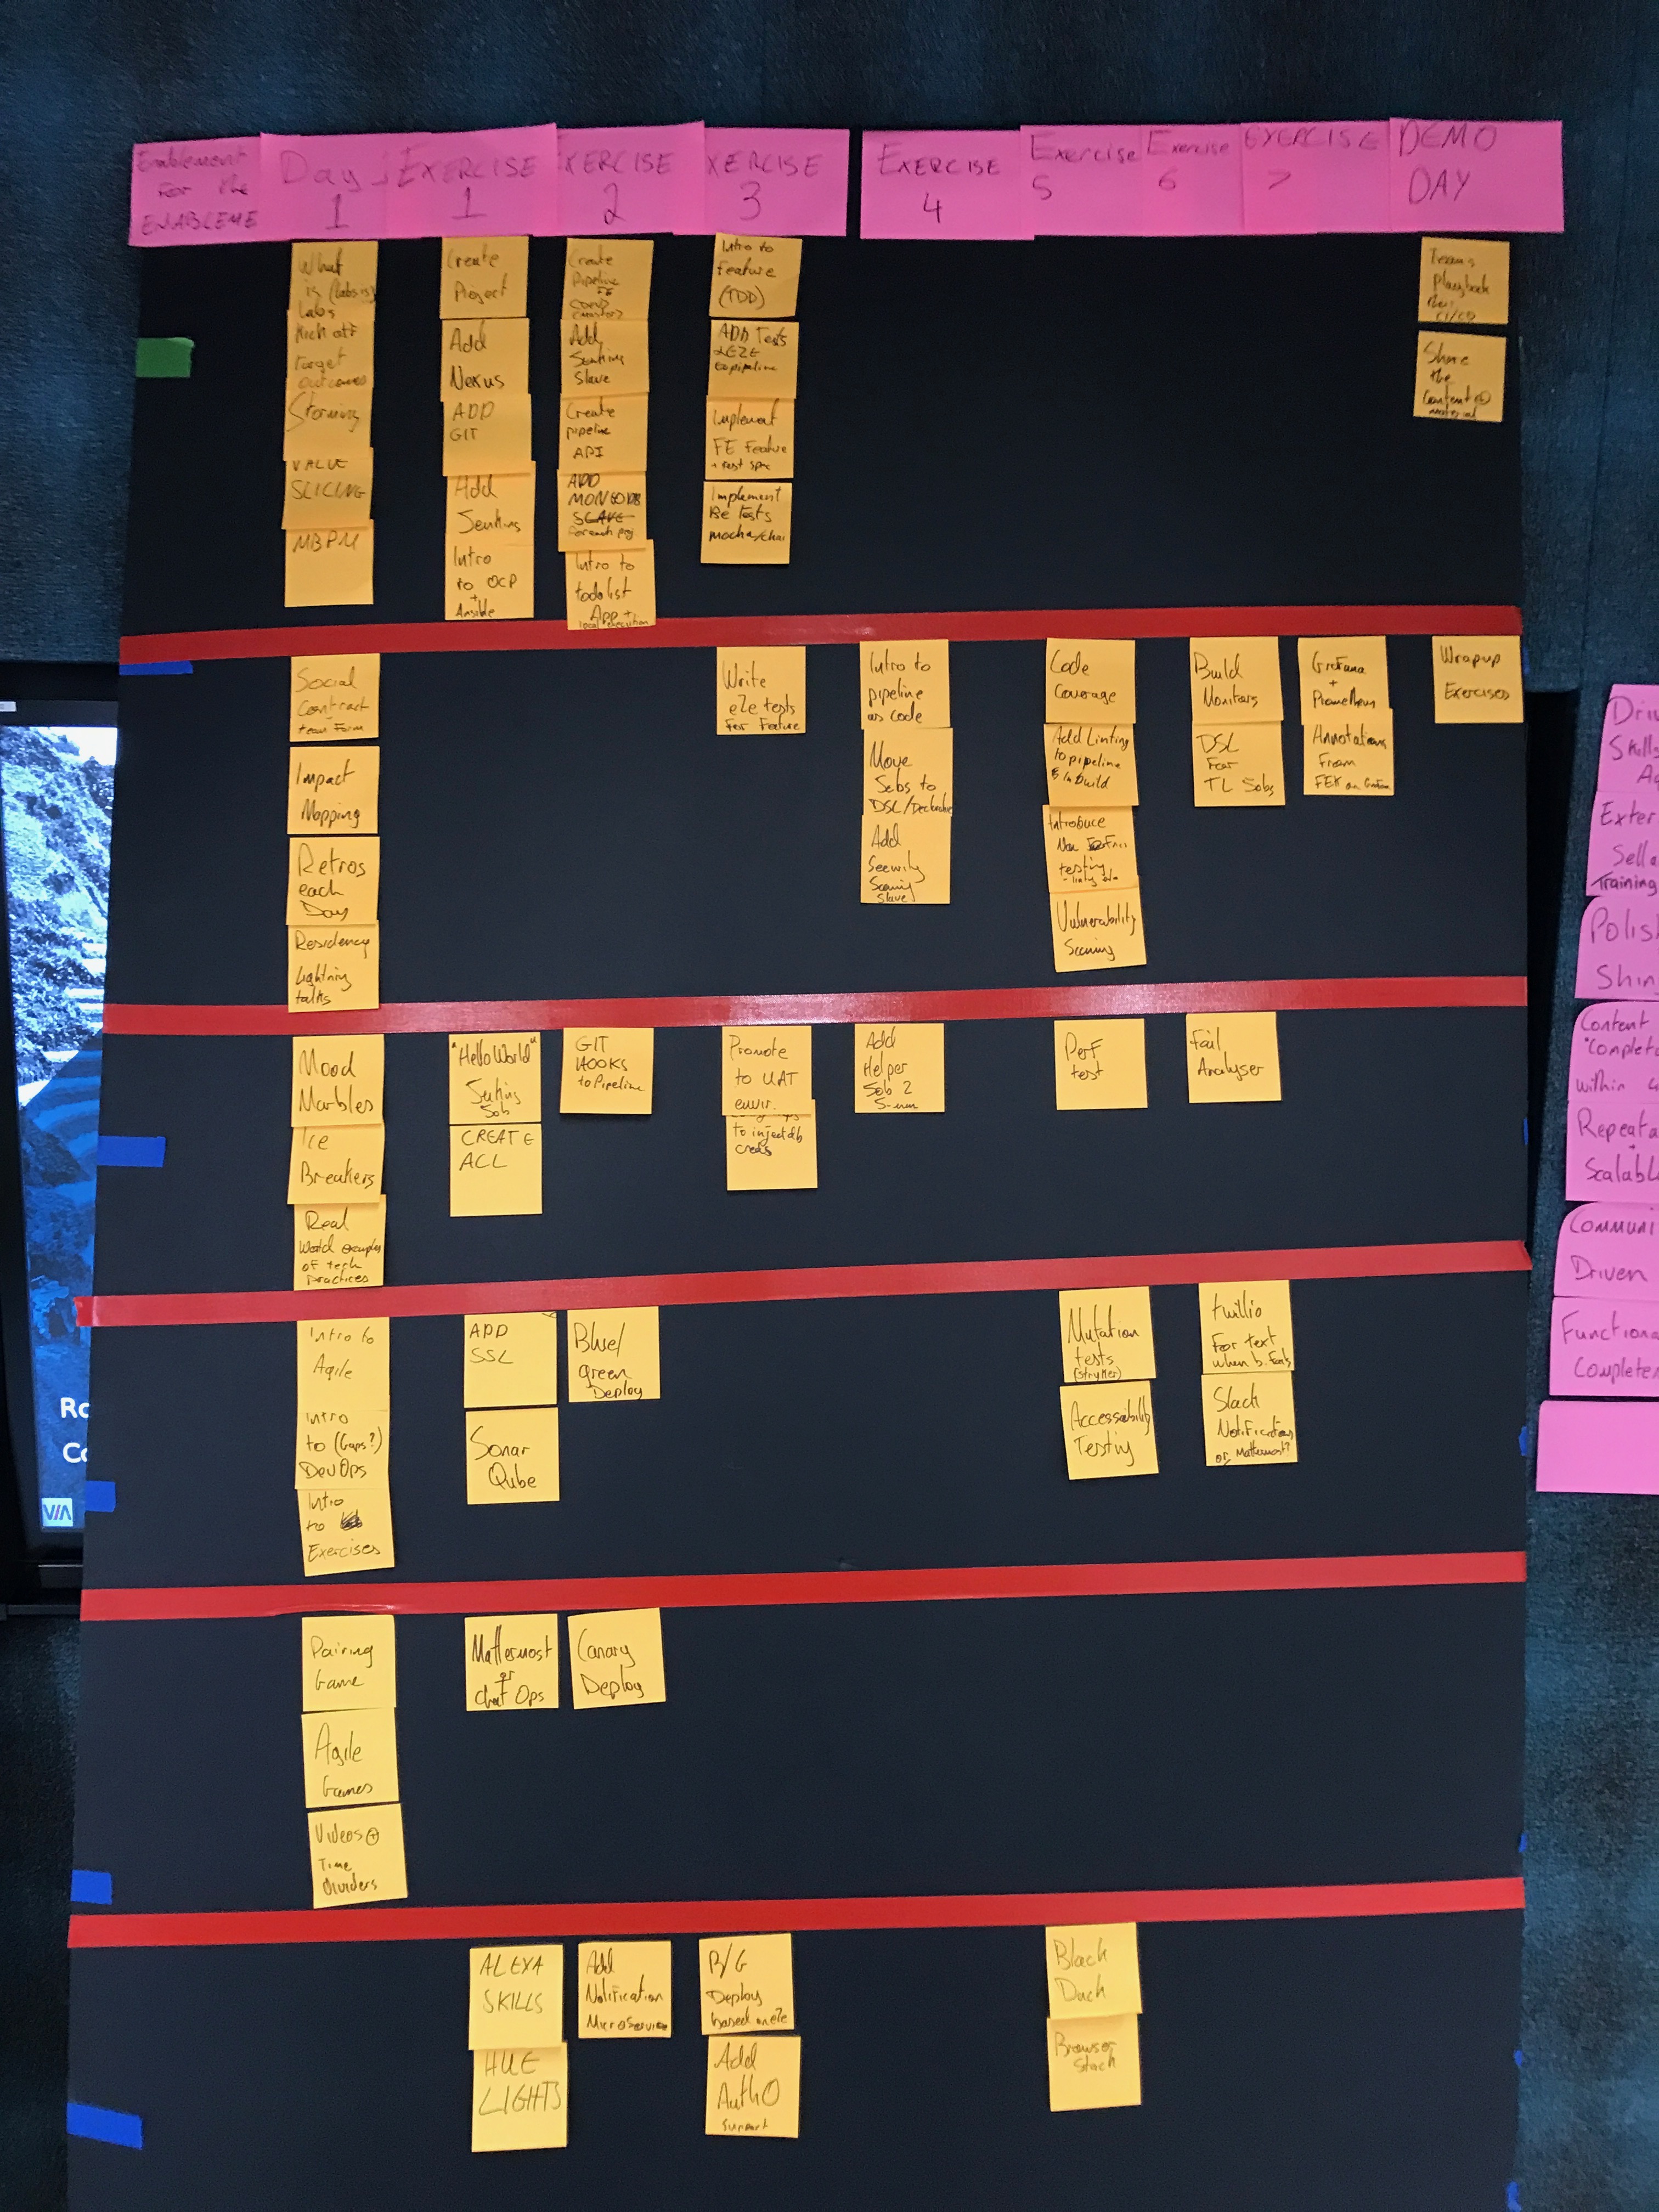 Enablement
For the
ENABLEME
Day
1
EXERCISE
1
XERCISE
2
XERCISE
3
EXERCISE
4
Exercise
5
Exercise
6
EXERCISE
7
DEMO
DAY
What
is (Labs is)
Labs
Kick off
Target
outcomes
Storming
VALUE
SLICING
MBPM
Create
Project
Add
Nexus
ADD
GIT
Add
Jenkins
Intro
to OCP
+
Ansible
Create
Pipeline
FE
Add
Jenkins
Slave
Create
pipeline
API
ADD
MONGODB
SLAVE
For each proj
Intro to
todolist
App +
local execution
Intro to
Feature
(TDD)
ADD Tests
to pipeline
Implement
FE Feature
+ test spec
Implement
Be Tests
mocha/chai
Teams
playbook
CI/CD
Share
the
Content
material
Social
Contract
team Form
Impact
Mapping
Retros
each
Day
Residency
Lightning
talks
Write
e2e tests
For Feature
Intro to
pipeline
as code
Move
Jobs to
DSL/Declarative
Add
Security
Scanning
Slave
Code
Coverage
Add Linting
to pipeline
& in build
Introduce
Non
testing
Vulnerability
Scanning
Build
Monitors
DSL
For
TL Jobs
Grafana
+
Prometheus
Annotations
From
FEK on Grafana
Wrapup
Exercises
Mood
Marbles
Ice
Breakers
Real
World examples
of tech
practices
"Hello World"
Jenkins
Job
CREATE
ACL
GIT
HOOKS
to Pipeline
Promote
to UAT
envir.
to inject db
creds
Add
Helper
Job 2
Perf
test
Fail
Analyser
Intro to
Agile
Intro
to (Gaps?)
DevOps
Intro
to
Exercises
ADD
SSL
Sonar
Qube
Blue/
green
Deploy
Mutation
tests
(stryker)
Accessability
Testing
twillio
For text
when b. fails
Slack
Notifications
or Mattermost?
Pairing
Game
Agile
Games
Videos +
Time
dividers
Mattermost
or
Chat Ops
Canary
Deploy
ALEXA
SKILLS
HUE
LIGHTS
Add
Notification
Microservice
B/G
Deploy
based on e2e
Add
AuthO
Support
Black
Duck
Browser
Stack
Driv
Skills
Exter
Sell
Training
Polish
Shin
Content
"Complete
within
Repeata
+
Scalabl
Communi
Driven
Functiona
Complete
Ro
Co
VIA